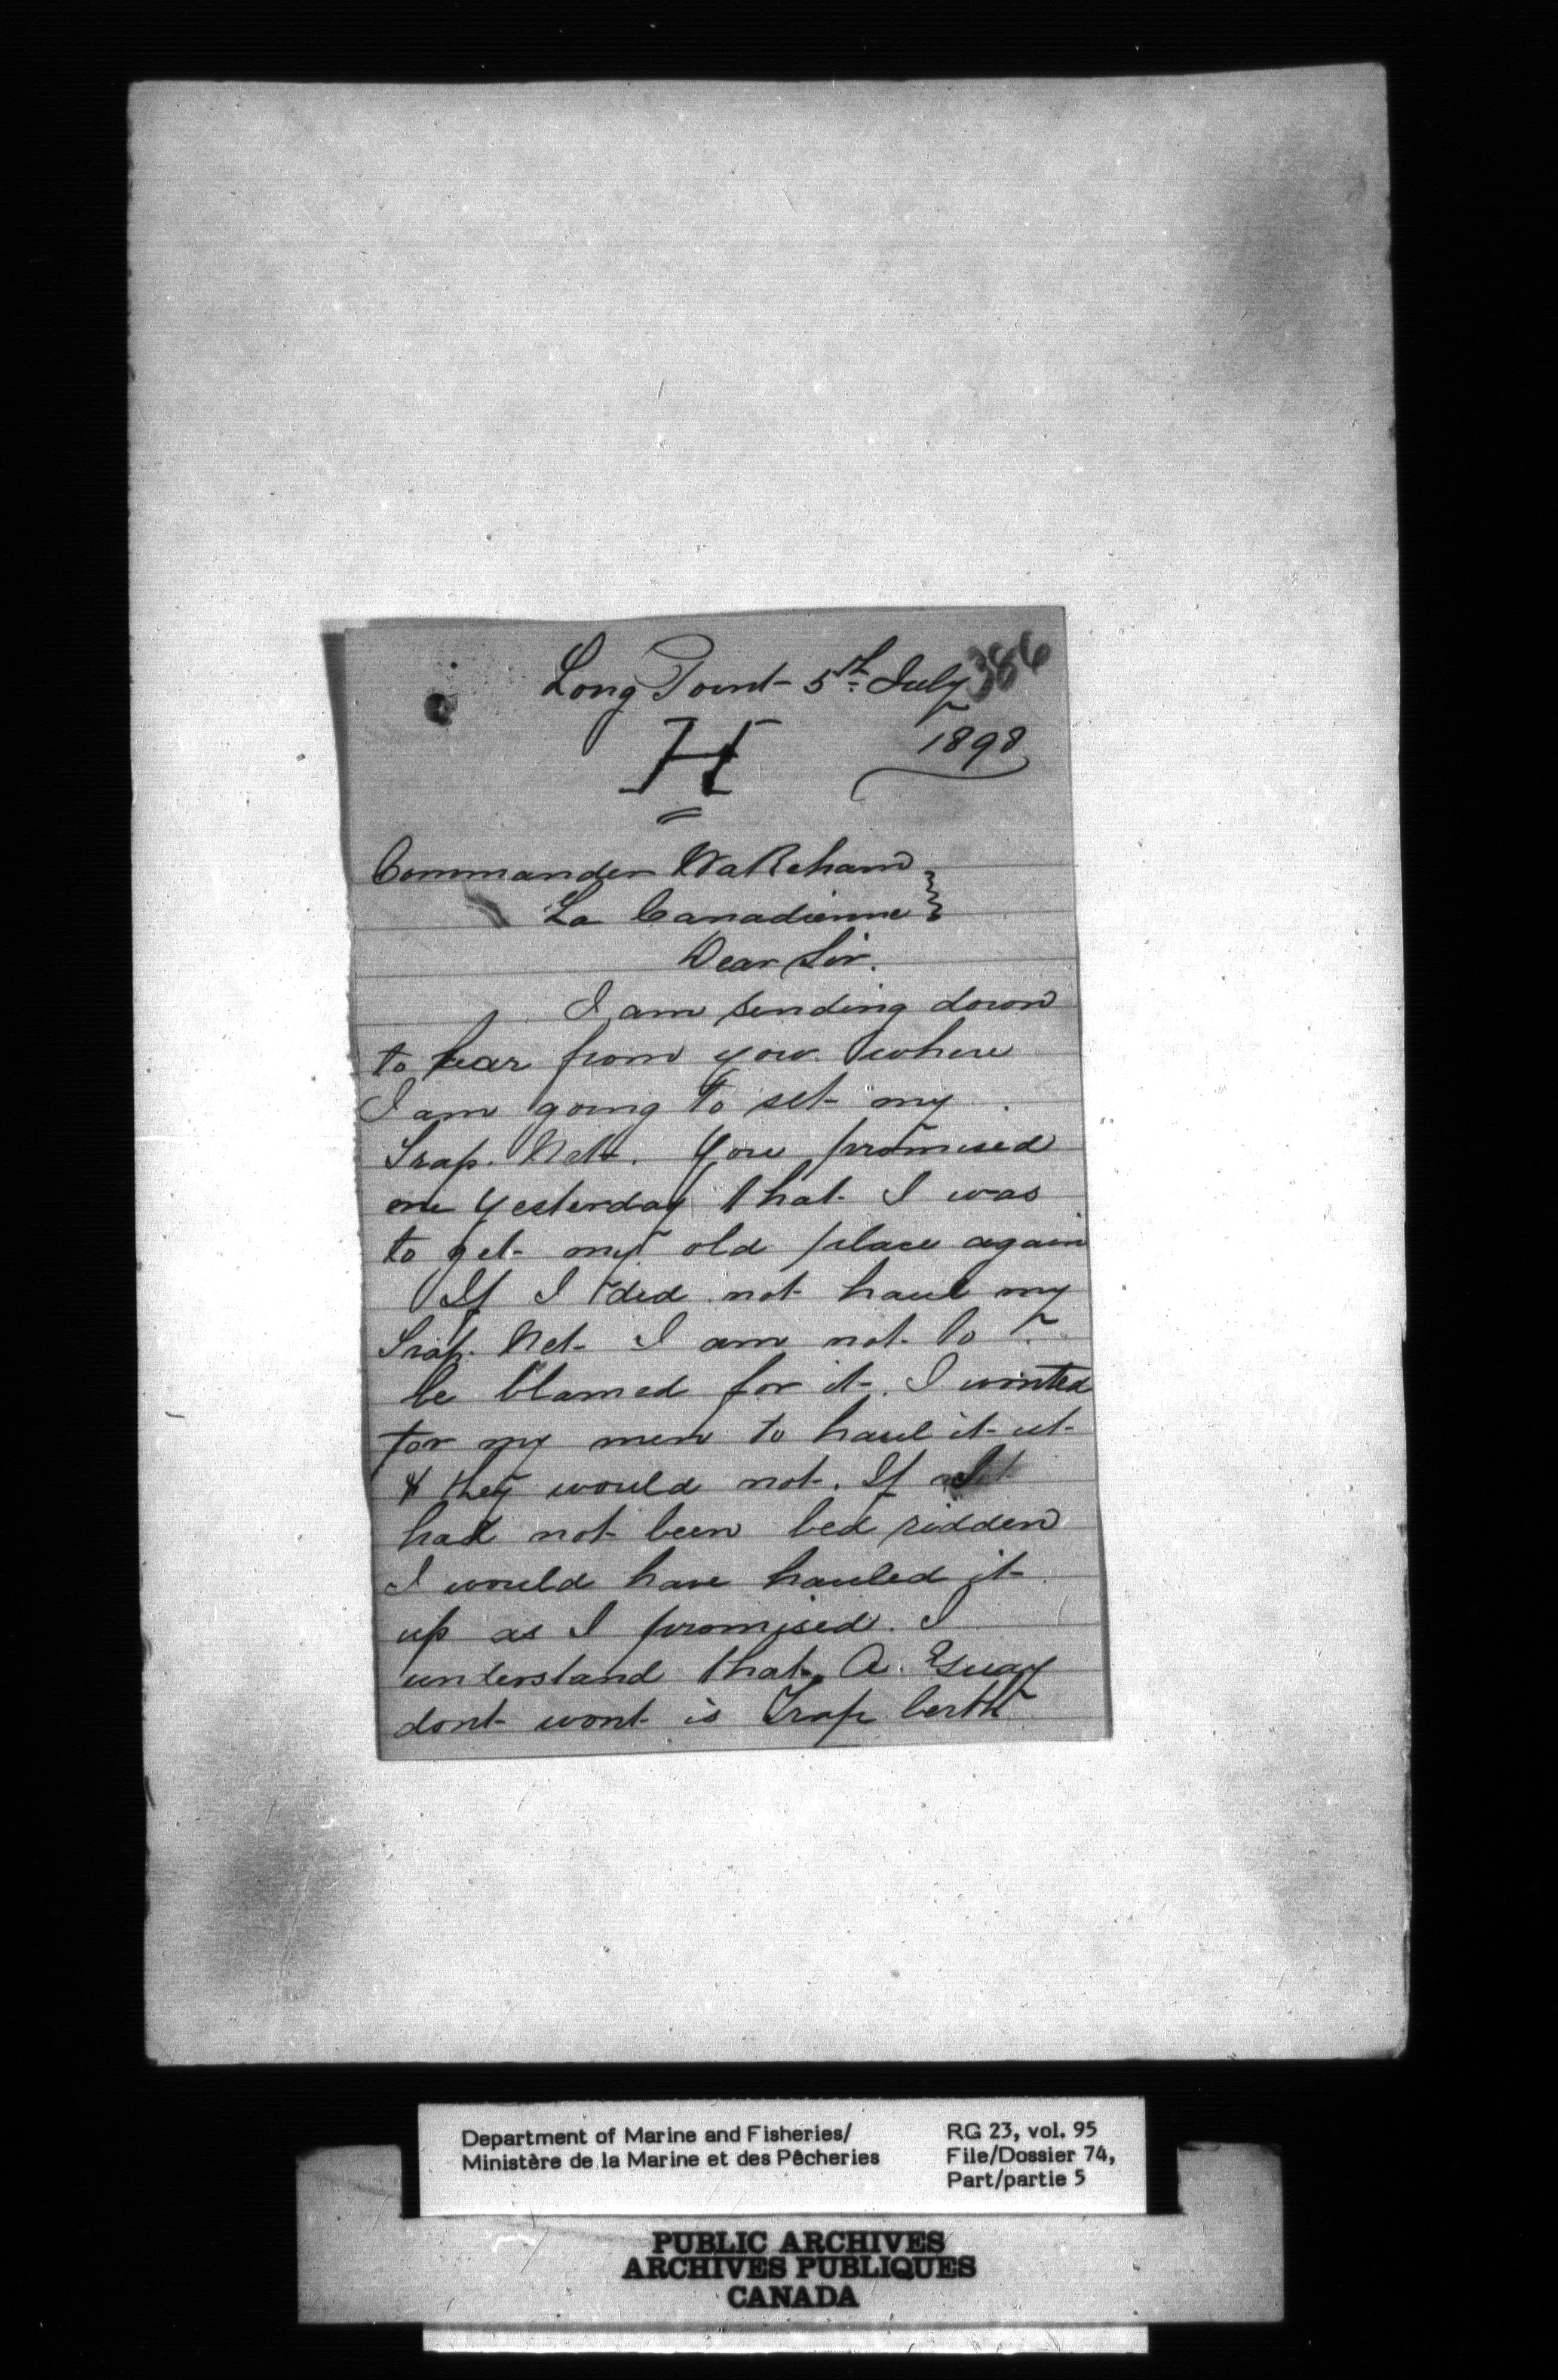 386
Long Point 5th July
1898
H
Commander Wakeham
La Canadienne
Dear Sir.
I am sending down
to hear from you where
I am going to set my
Trap. Net. You promised
me yesterday that I was
to get my old place again
If I did not haul my
Trap. Net I am not to
be blamed for it. I wonted
for my men to haul it up
& they would not. If I
had not been bed ridden
I would have hauled it
up as I promised. I
understand that A. Guay
dont wont is Trap berth
Department of Marine and Fisheries/
Ministère de la Marine et des Pêcheries
RG 23, vol. 95
File/Dossier 74,
Part/partie 5
PUBLIC ARCHIVES
ARCHIVES PUBLIQUES
CANADA